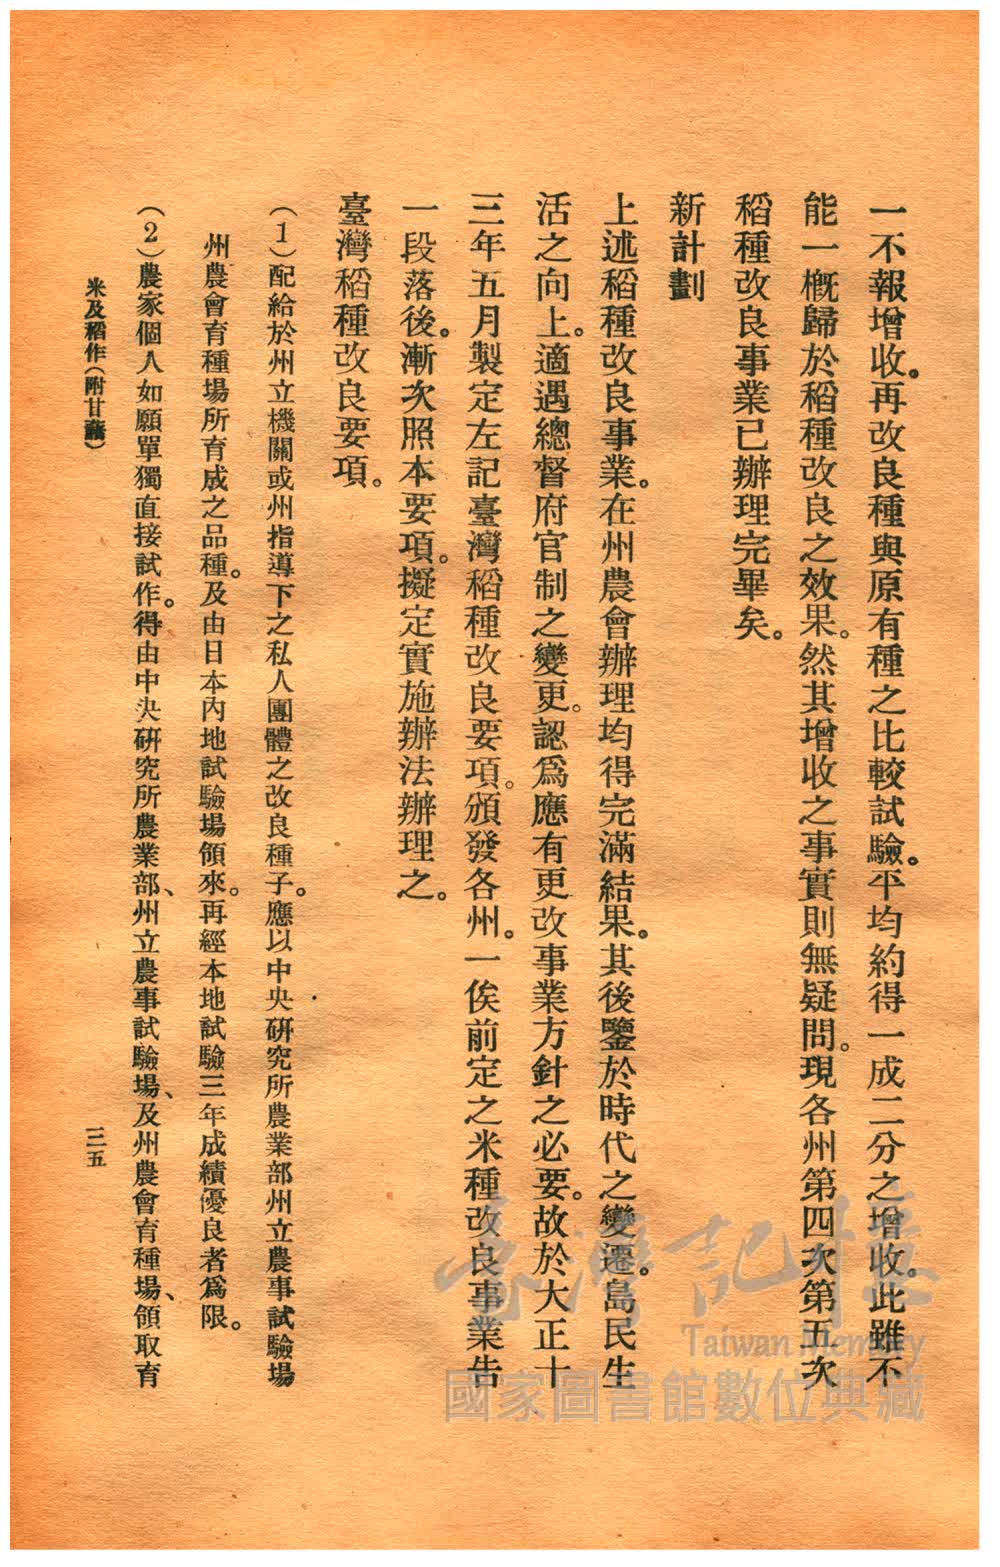 一不報增收。再改良種與原有種之比較試驗。平均約得一成二分之增收。此雖不
能一概歸於稻種改良之效果。然其增收之事實則無疑問。現各州第四次第五次
稻種改良事業已辦理完畢矣。
新計劃
上述稻種改良事業。在州農會辦理均得完滿結果。其後鑒於時代之變遷。島民生
活之向上。適遇總督府官制之變更。認爲應有更改事業方針之必要。故於大正十
三年五月製定左記臺灣稻種改良要項。頒發各州。一俟前定之米種改良事業告
一段落後。漸次照本要項。擬定實施辦法辦理之。
臺灣稻種改良要項。
（1）配給於州立機關或州指導下之私人團體之改良種子。應以中央研究所農業部州立農事試驗場
州農會育種場所育成之品種。及由日本內地試驗場領來。再經本地試驗三年成績優良者爲限。
（2）農家個人如願單獨直接試作。得由中央研究所農業部、州立農事試驗場、及州農會育種場、領取育
米及稻作（附甘藷）
三五
臺灣記憶
Taiwan Memory
國家圖書館數位典藏